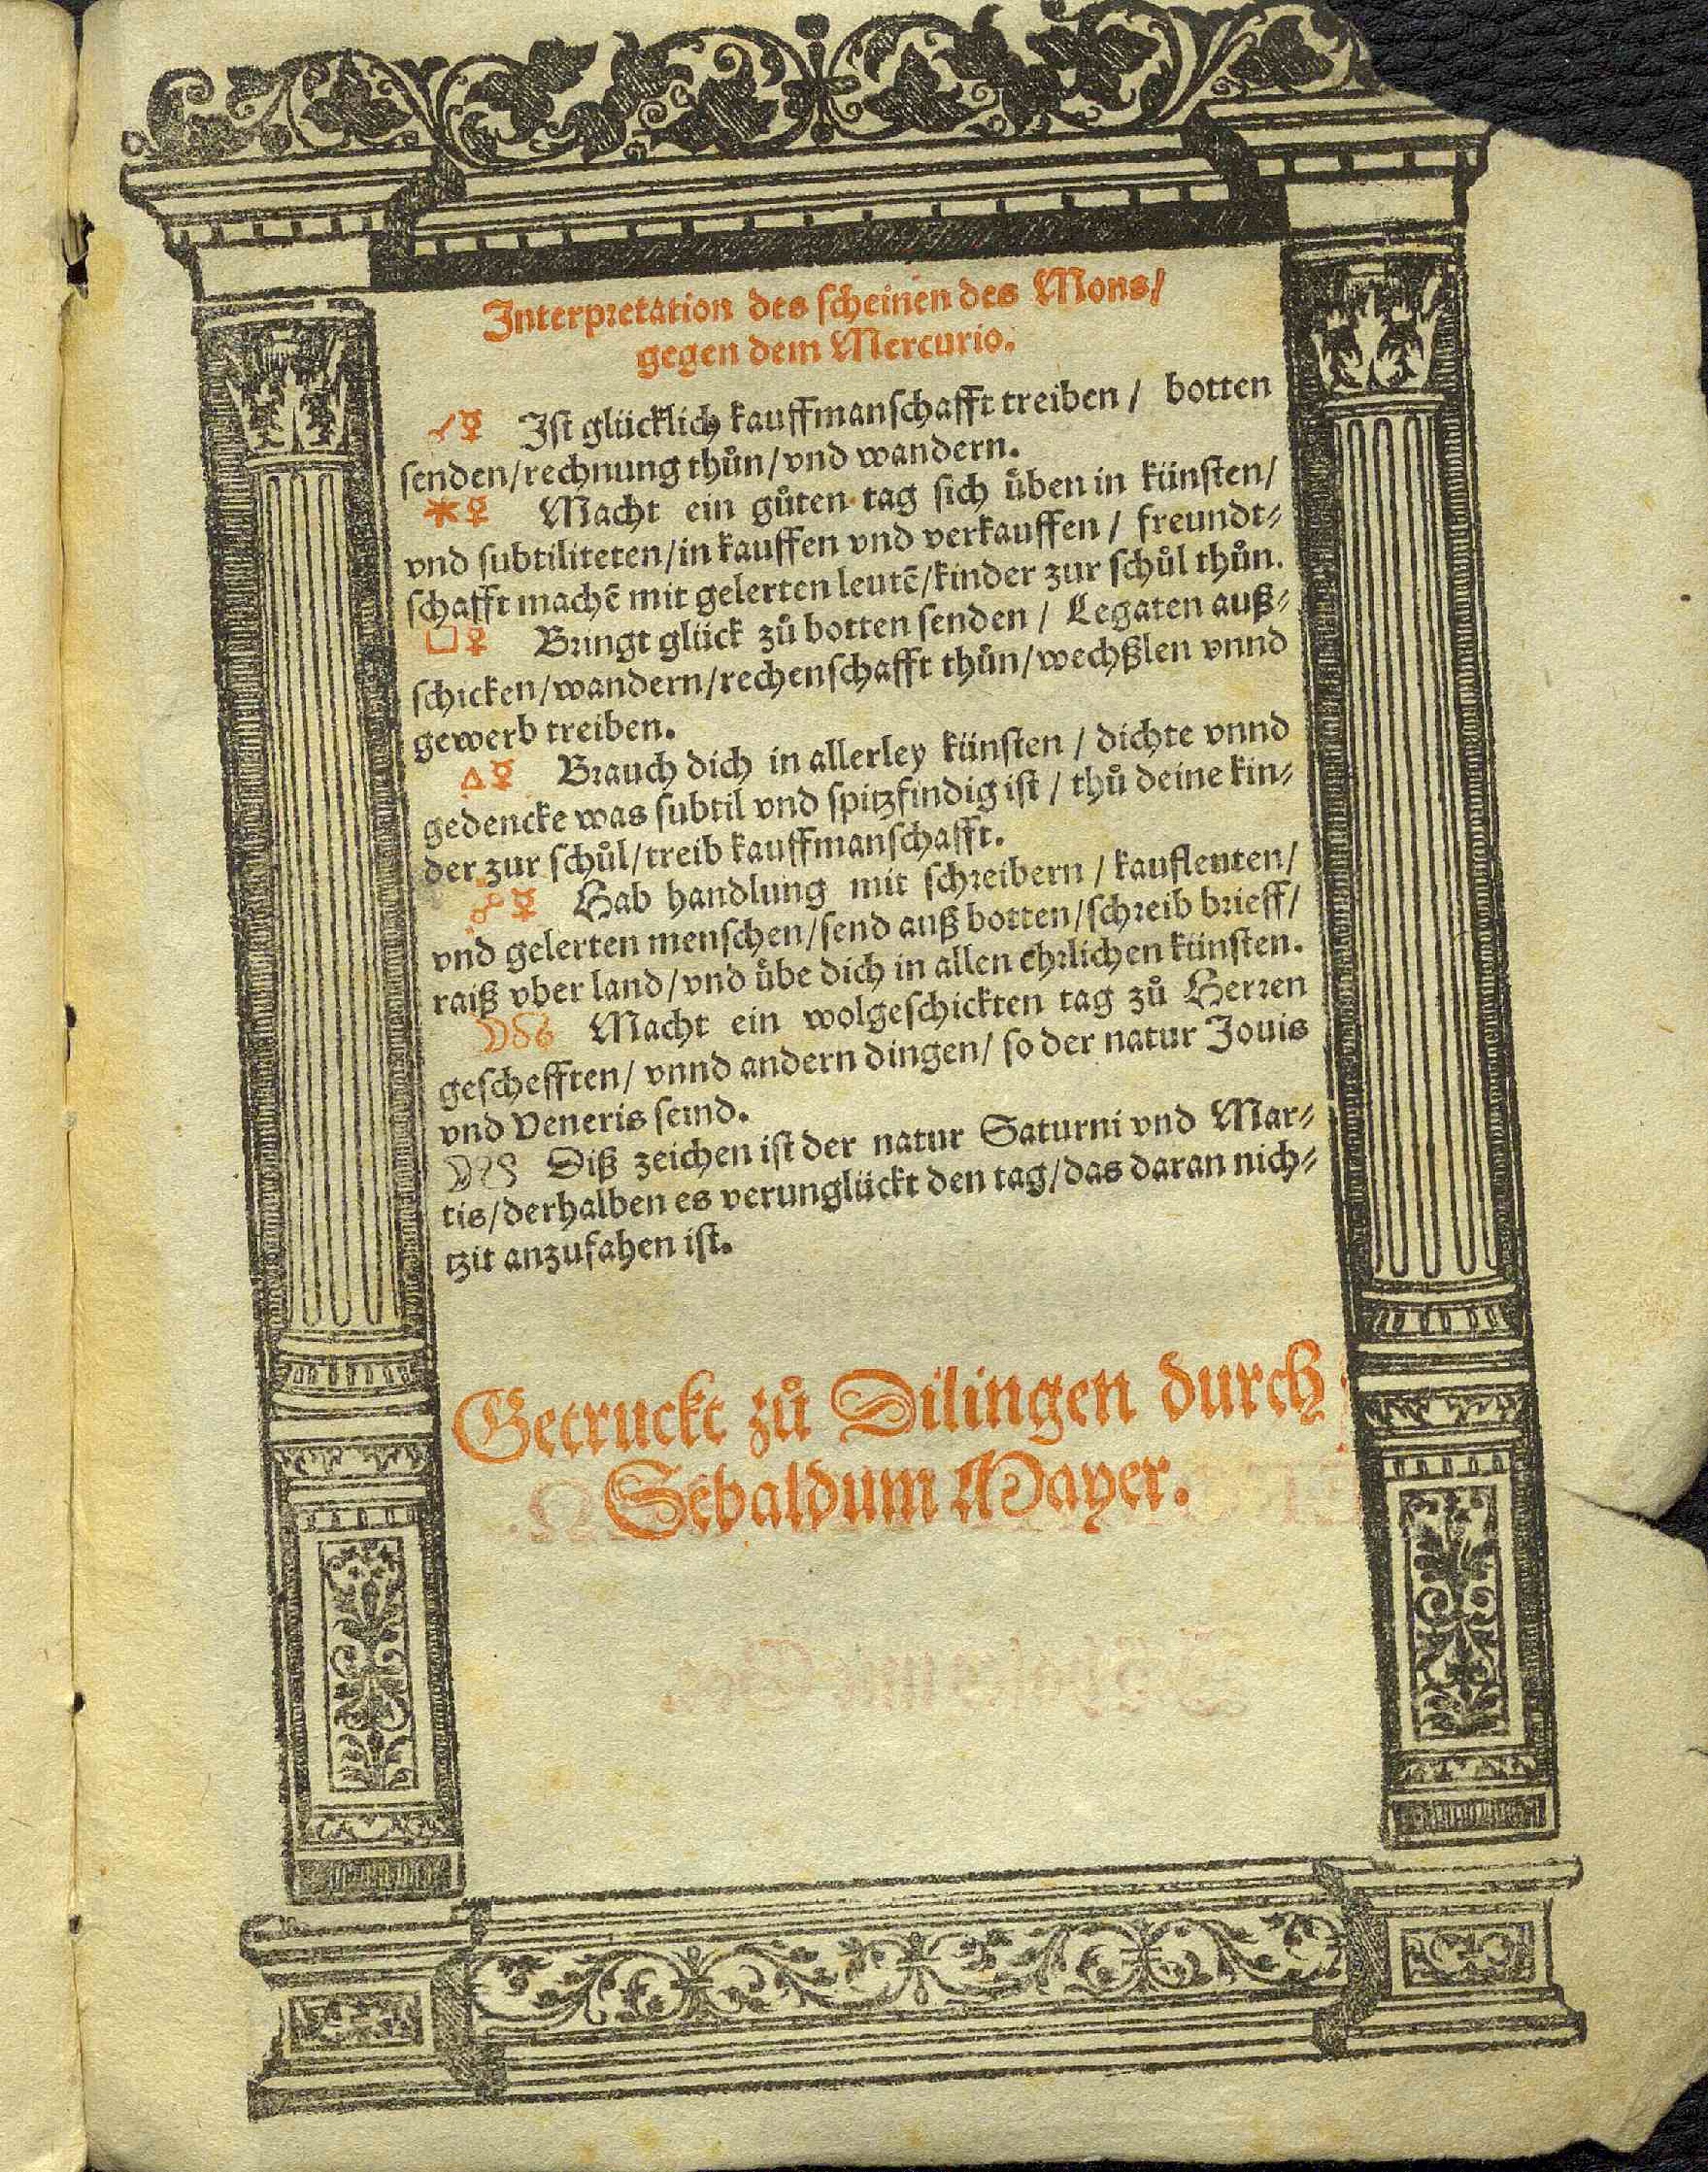 Interpretation des scheinen des Mons/
gegen dem Mercurio.
☌☿ Ist glücklich kauffmanschafft treiben / botten
senden/rechnung thůn/vnd wandern.
⚹☿ Macht ein gůten tag sich ůben in künsten/
vnd subtiliteten/in kauffen vnd verkauffen / freundt⸗
schafft machē mit gelerten leutē/kinder zur schůl thůn.
□☿ Bringt glück zů botten senden / Legaten auß⸗
schicken/wandern/rechenschafft thůn/wechßlen vnnd
gewerb treiben.
△☿ Brauch dich in allerley künsten / dichte vnnd
gedencke was subtil vnd spitzfindig ist / thů deine kin⸗
der zur schůl/treib kauffmanschafft.
☍☿ Hab handlung mit schreibern / kauflenten/
vnd gelerten menschen/send auß botten/schreib brieff/
raiß vber land/vnd ůbe dich in allen ehrlichen künsten.
☽☊ Macht ein wolgeschickten tag zů Herren
geschefften/ vnnd andern dingen/ so der natur Jouis
vnd Veneris seind.
☽☋ Diß zeichen ist der natur Saturni vnd Mar⸗
tis/derhalben es verunglückt den tag/das daran nich⸗
tzit anzufahen ist.
Getruckt zů Dilingen durch
Sebaldum Mayer.